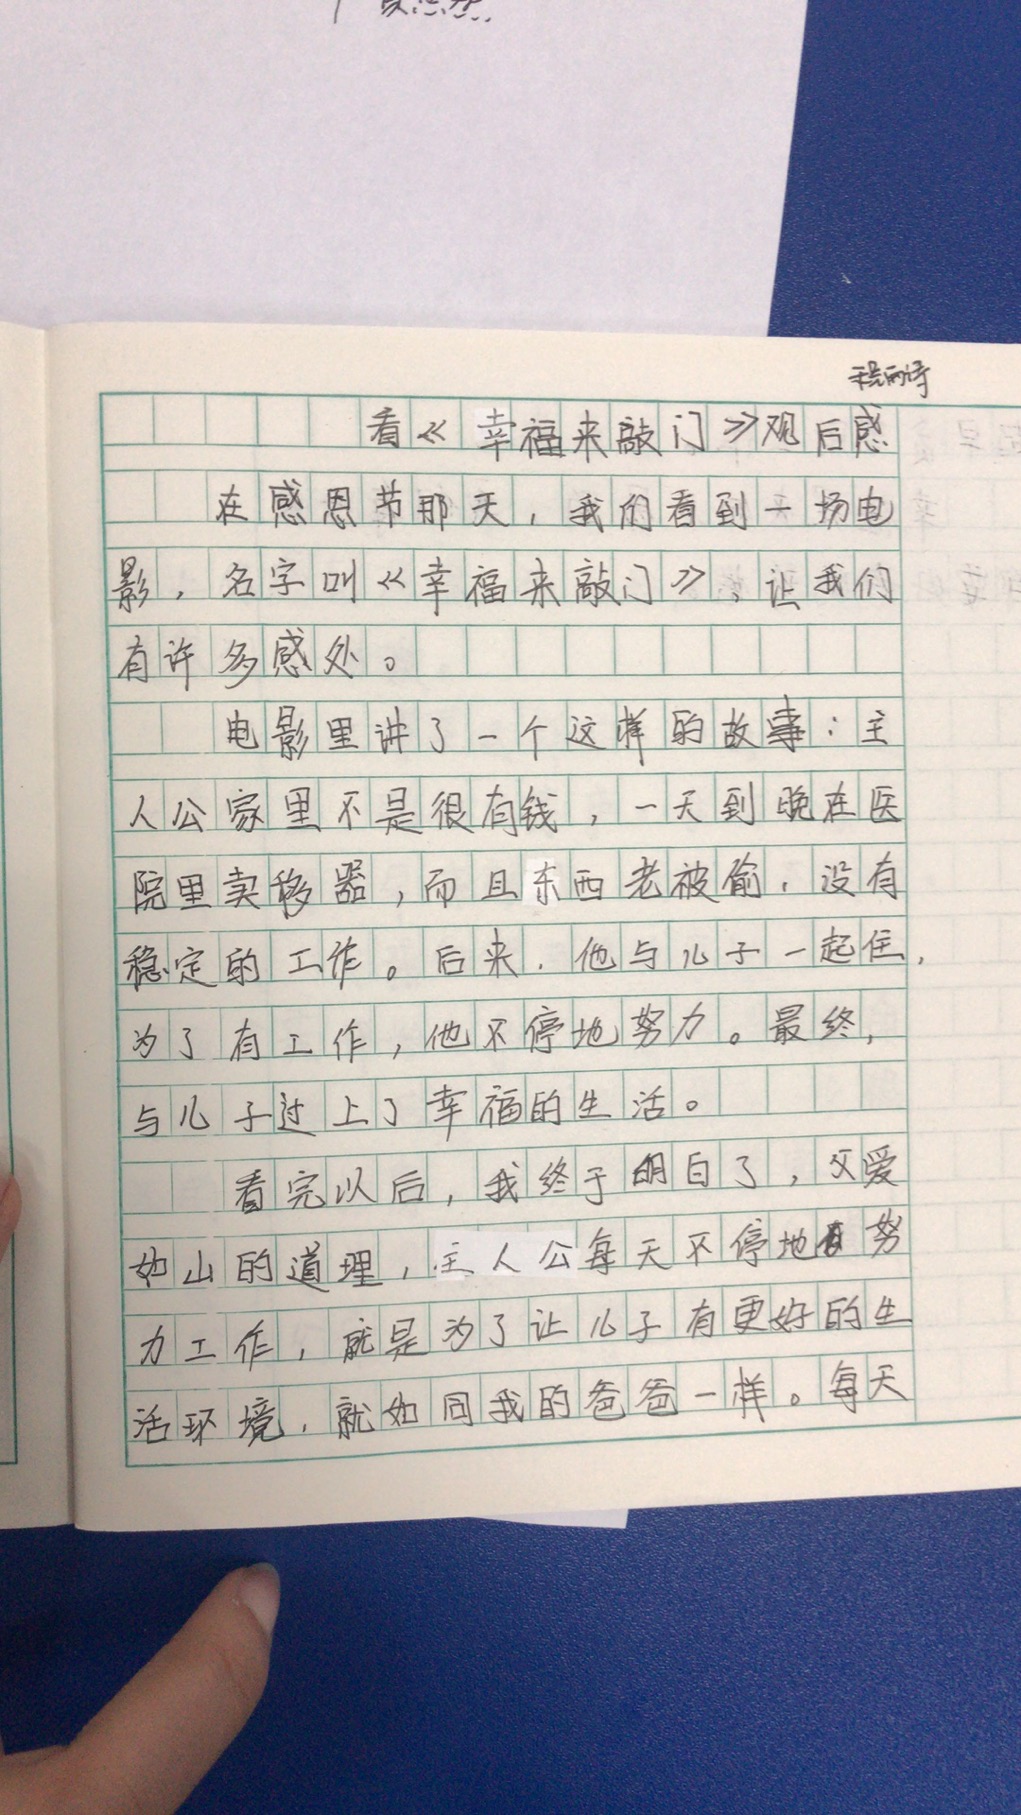 看《幸福来敲门》观后感
在感恩节那天，我们看到一场电
影，名字叫《幸福来敲门》，让我们
有许多感处。
电影里讲了一个这样的故事：主
人公家里不是很有钱，一天到晚在医
院里卖移器，而且东西老被偷，没有
稳定的工作。后来，他与儿子一起住，
为了有工作，他不停地努力。最终，
与儿子过上了幸福的生活。
看完以后，我终于明白了，父爱
如山的道理，主人公每天不停地努
力工作，就是为了让儿子有更好的生
活环境，就如同我的爸爸一样。每天